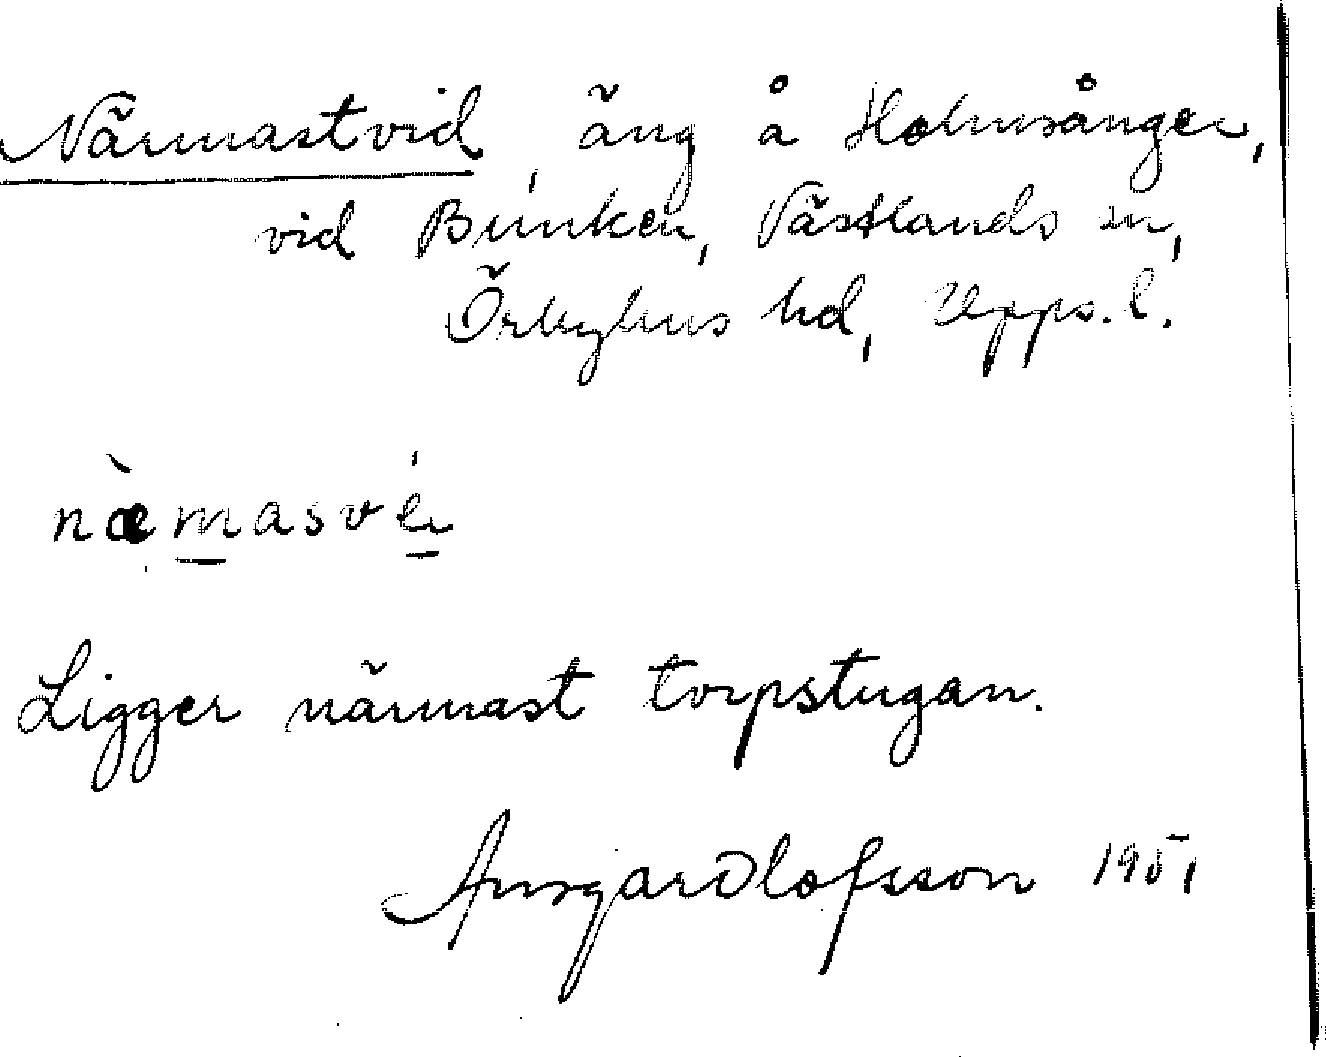 Närmastvid, äng å Holmsånger,
vid Bunken, Västlands sn,
Örbyhus hd, Upps. l.
næ̀masvé
Ligger närmast torpstugan.
Ansgar Olofsson 1951